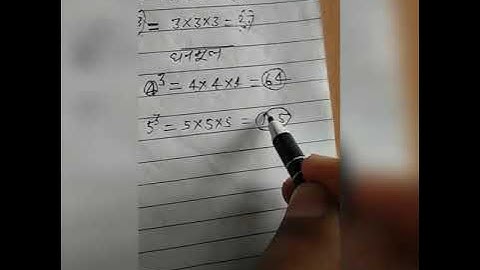 3×3×3 = 27
घनमूल
4³ = 4×4×4 = 64
5³ = 5×5×5 =